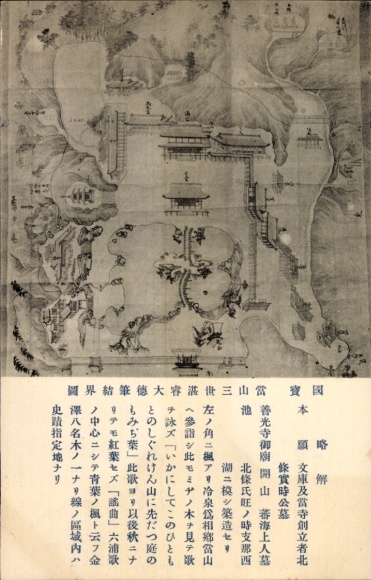 國寶 當山三世湛睿大德筆結界圖
略解
本願 文庫及當寺創立者北
條實時公墓
善光寺御廟 開山 審海上人墓
池 北條氏旺ノ時支那西
湖ニ模シ築造セリ
左ノ角ニ楓アリ冷泉爲相鄕當山
ヘ參詣シ此モミヂノ木ヲ見テ歌
ヲ詠ズ「いかにしてこのひとも
とのしぐれけん山に先だつ庭の
もみぢ葉」此歌ヨリ以後秋ニナ
リテモ紅葉セズ「謡曲」六浦歌
ノ中心ニシテ青葉ノ楓ト云フ金
澤八名木ノ一ナリ線ノ區域內ハ
史蹟指定地ナリ